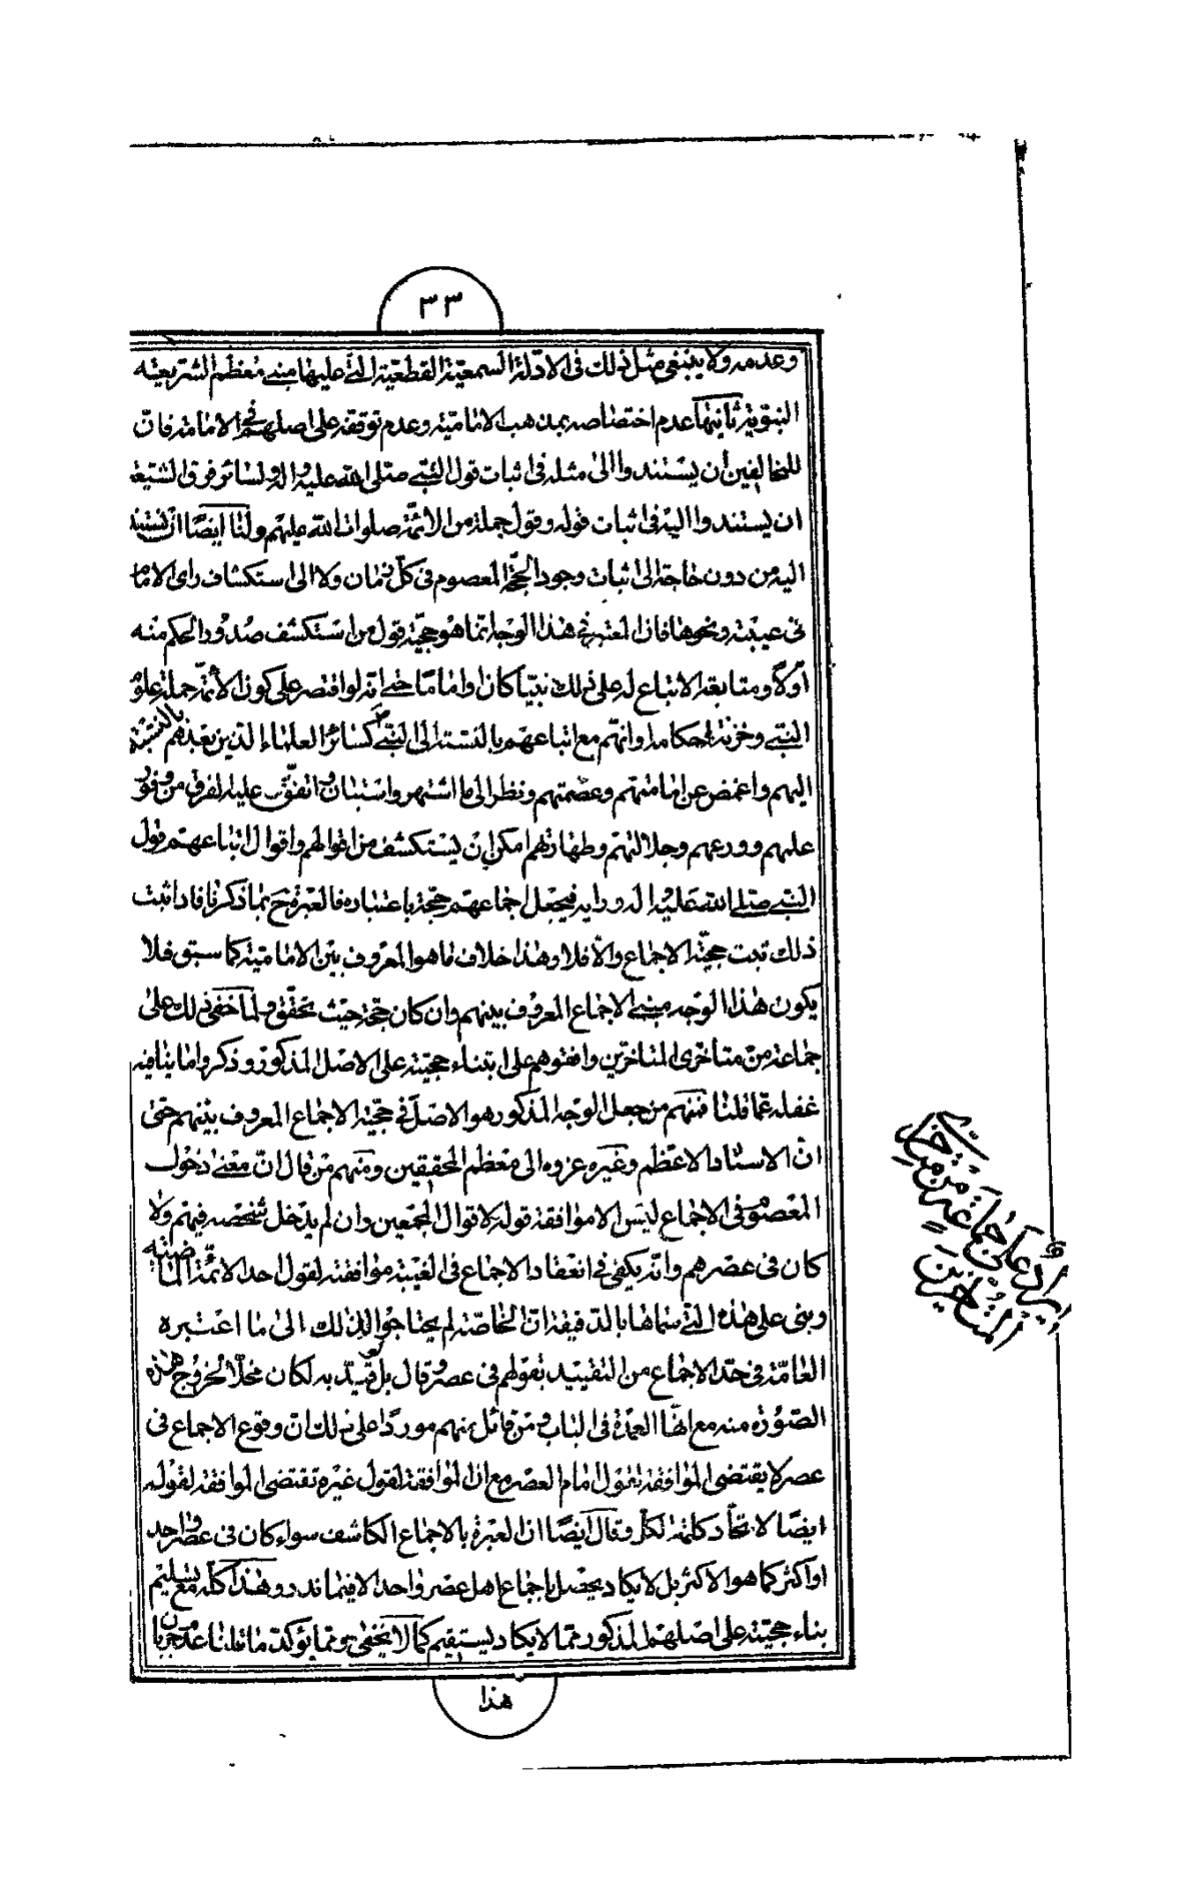 ٣٣
وعدمه ولا ينبغي مثل ذلك في الادلة السمعية القطعية التي عليها مبنى معظم الشريعة
النبوية ثانيها عدم اختصاصه بمذهب الامامية وعدم توقفه على اصلهم في الامامة فان
للمخالفين أن يستندوا الى مثله في اثبات قول النبي صلى الله عليه واله ولسائر فرق الشيعة
ان يستندوا اليه في اثبات قوله وقول جملة من الائمة صلوات الله عليهم ولنا ايضًا ان نستند
اليه من دون حاجة الى اثبات وجود الحجة المعصوم في كل زمان ولا الى استكشاف راى الامام
في غيبته ونحوها فان المعتبر في هذا الوجه انما هو حجية قول من استكشف صدور الحكم منه
أولاً ومتابعة الاتباع له على ذلك نبيّا كان واماما حتى انه لو اقتصر على كون الائمة حملة علوم
النبي وخزنة لاحكامه وانهم مع اتباعهم بالنسبة الى النبي ص كسائر العلماء الذين بعدهم بالنسبة
اليهم واغمض عن امامتهم وعصمتهم ونظر الى ما اشتهر واستبان واتفق عليه الفرق من وفور
علمهم وورعهم وجلالتهم وطهارتهم امكن ان يستكشف من اقوالهم واقوال اتباعهم قول
النبي صلى الله عليه واله ورايه فيجعل اجماعهم حجة باعتباره فالعبرة ح بما ذكرنا فاذا ثبت
ذلك ثبت حجية الاجماع والا فلا وهذا خلاف ما هو المعروف بين الامامية كما سبق فلا
يكون هذا الوجه مبنى الاجماع المعروف بينهم وان كان حجة حيث تحقق ولما خفى ذلك على
جماعة من متاخري المتاخرين وافقوهم على ابتناء حجيته على الاصل المذكور وذكروا ما ينافيه
غفلة عما قلنا فمنهم من جعل الوجه المذكور هو الاصل في حجية الاجماع المعروف بينهم حتى
ان الاستاد الاعظم وغيره عزوه الى معظم المحققين ومنهم من قال ان معنى دخول
المعصوم في الاجماع ليس الا موافقة قوله لاقوال المجمعين وان لم يدخل شخصه فيهم ولا
كان في عصرهم وانه يكفي في انعقاد الاجماع في الغيبة موافقته لقول احد الائمة الماضية
وبنى على هذه التي سماها بالدقيقة ان الخاصة لم يحتاجوا لذلك الى ما اعتبره
العامة في حد الاجماع من التقييد بقولهم في عصر وقال بل لو قيد به لكان مخلّا لخروج هذه
الصورة منه مع انها العمدة في الباب ومن قائل منهم موردًا على ذلك ان وقوع الاجماع في
عصر لا يقتضي الموافقة لقول امام العصر مع ان الموافقة لقول غيره تقتضي الموافقة لقوله
ايضًا لاتحاد كلمة الكل وقال ايضًا ان العبرة بالاجماع الكاشف سواء كان في عصر واحد
او اكثر كما هو الاكثر بل لا يكاد يحصل باجماع اهل عصر واحد الا فيما ندر وهذا كله مع تسليم
بناء حجيته على اصلهم المذكور مما لا يكاد يستقيم كما لا يخفى ومما يؤكد ما قلنا عدم جريان
هذا
ايراد على جماعة من متاخرى
المتاخرين